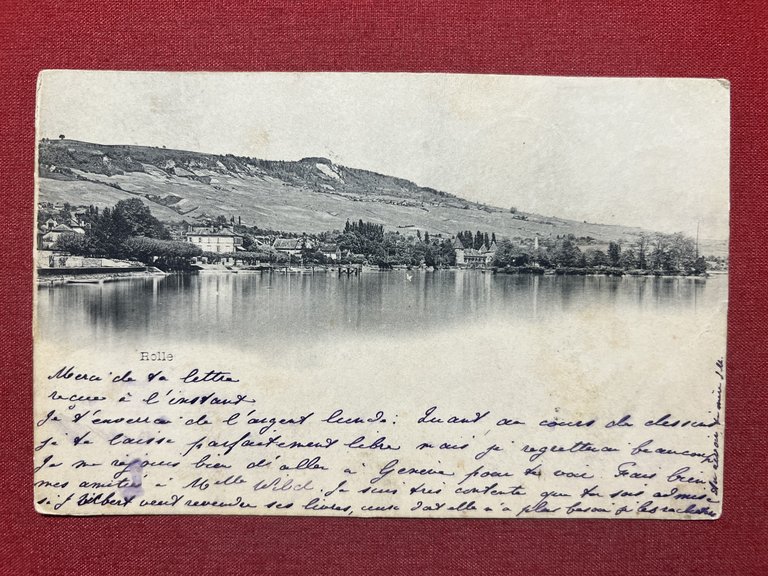 Rolle
Merci de ta lettre
recue à l'instant
Je t'enverrai de l'argent lundi. Quant au cours de dessin
je te laisse parfaitement libre mais je regretterai beaucoup
Je me rejouis bien d'aller a Genève pour te voir Fais bien
mes amitiés à Melle Je suis très contente que tu sois admise
si J veut revendre ses livres, dont elle n'a plus besoin je les
au revoir